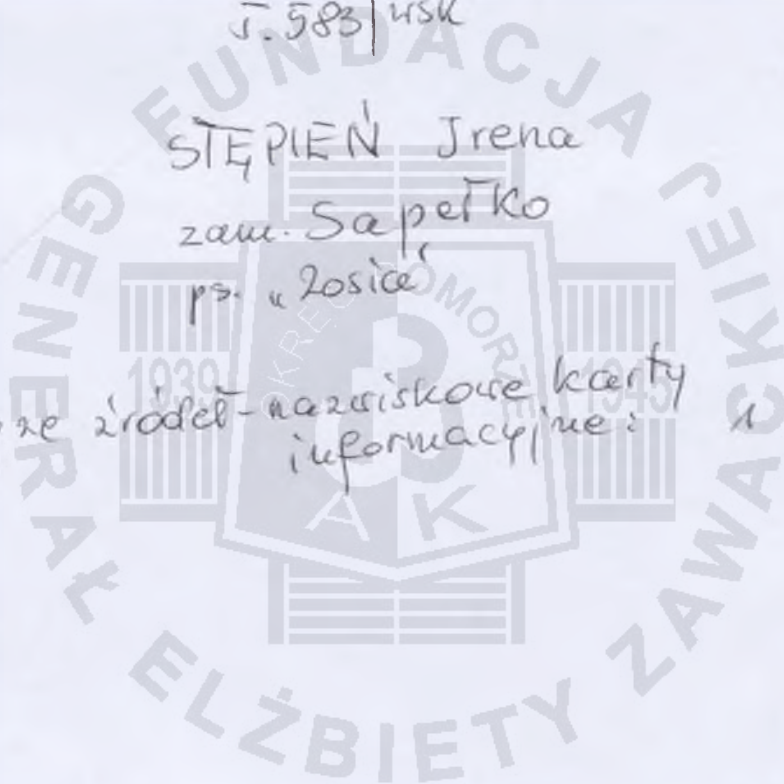 T. 583/WSK
STĘPIEŃ Irena
zam. Sapełko
ps. „Zosia”
ze źródeł - nazwiskowe karty
informacyjne: 1
FUNDACJA GENERAŁ ELŻBIETY ZAWACKIEJ
1939 1945
OKRĘG POMORZE
AK